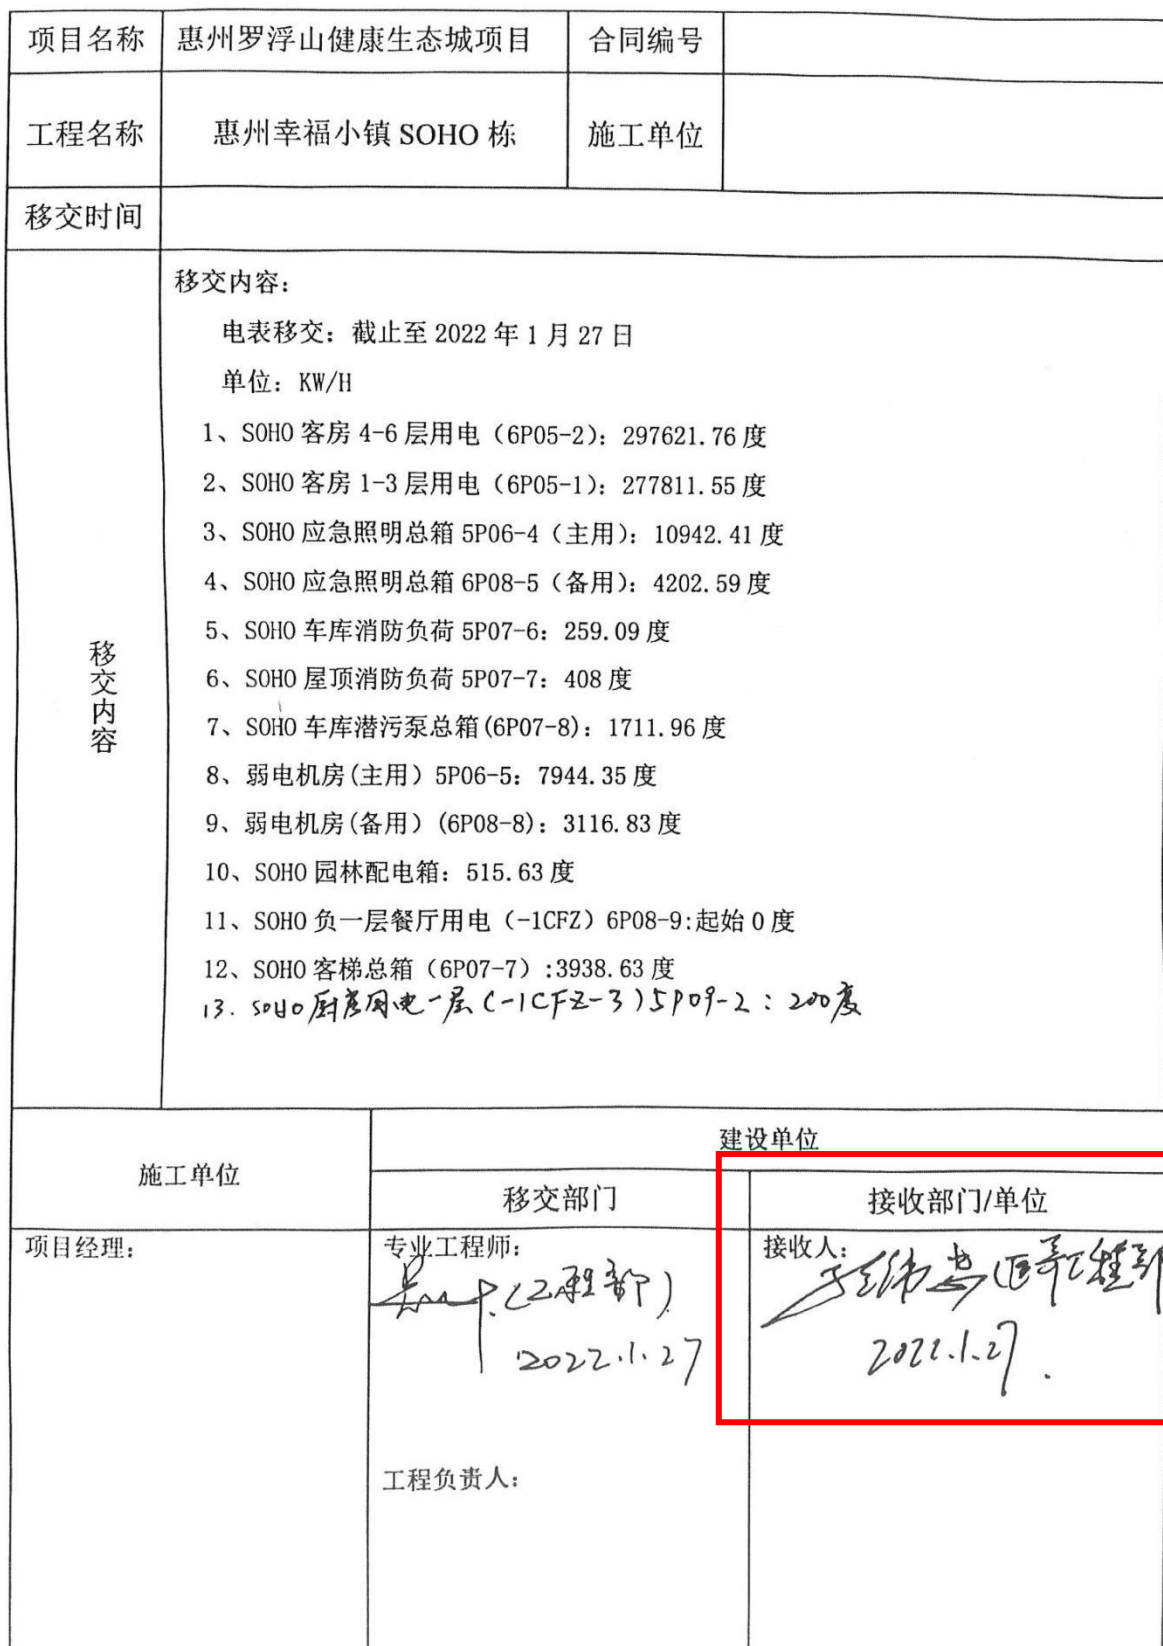 项目名称 惠州罗浮山健康生态城项目 合同编号
工程名称 惠州幸福小镇 SOHO 栋 施工单位
移交时间
移交内容
移交内容：
电表移交：截止至 2022 年 1 月 27 日
单位：KW/H
1、SOHO 客房 4-6 层用电（6P05-2）：297621.76 度
2、SOHO 客房 1-3 层用电（6P05-1）：277811.55 度
3、SOHO 应急照明总箱 5P06-4（主用）：10942.41 度
4、SOHO 应急照明总箱 6P08-5（备用）：4202.59 度
5、SOHO 车库消防负荷 5P07-6：259.09 度
6、SOHO 屋顶消防负荷 5P07-7：408 度
7、SOHO 车库潜污泵总箱(6P07-8)：1711.96 度
8、弱电机房(主用）5P06-5：7944.35 度
9、弱电机房(备用）(6P08-8)：3116.83 度
10、SOHO 园林配电箱：515.63 度
11、SOHO 负一层餐厅用电（-1CFZ）6P08-9:起始 0 度
12、SOHO 客梯总箱（6P07-7）:3938.63 度
13. SOHO 厨房用电一层(-1CFZ-3)5P09-2：200度
施工单位 建设单位
移交部门 接收部门/单位
项目经理： 专业工程师： 接收人：
(工程部) 工程部
2022.1.27 2022.1.27.
工程负责人：